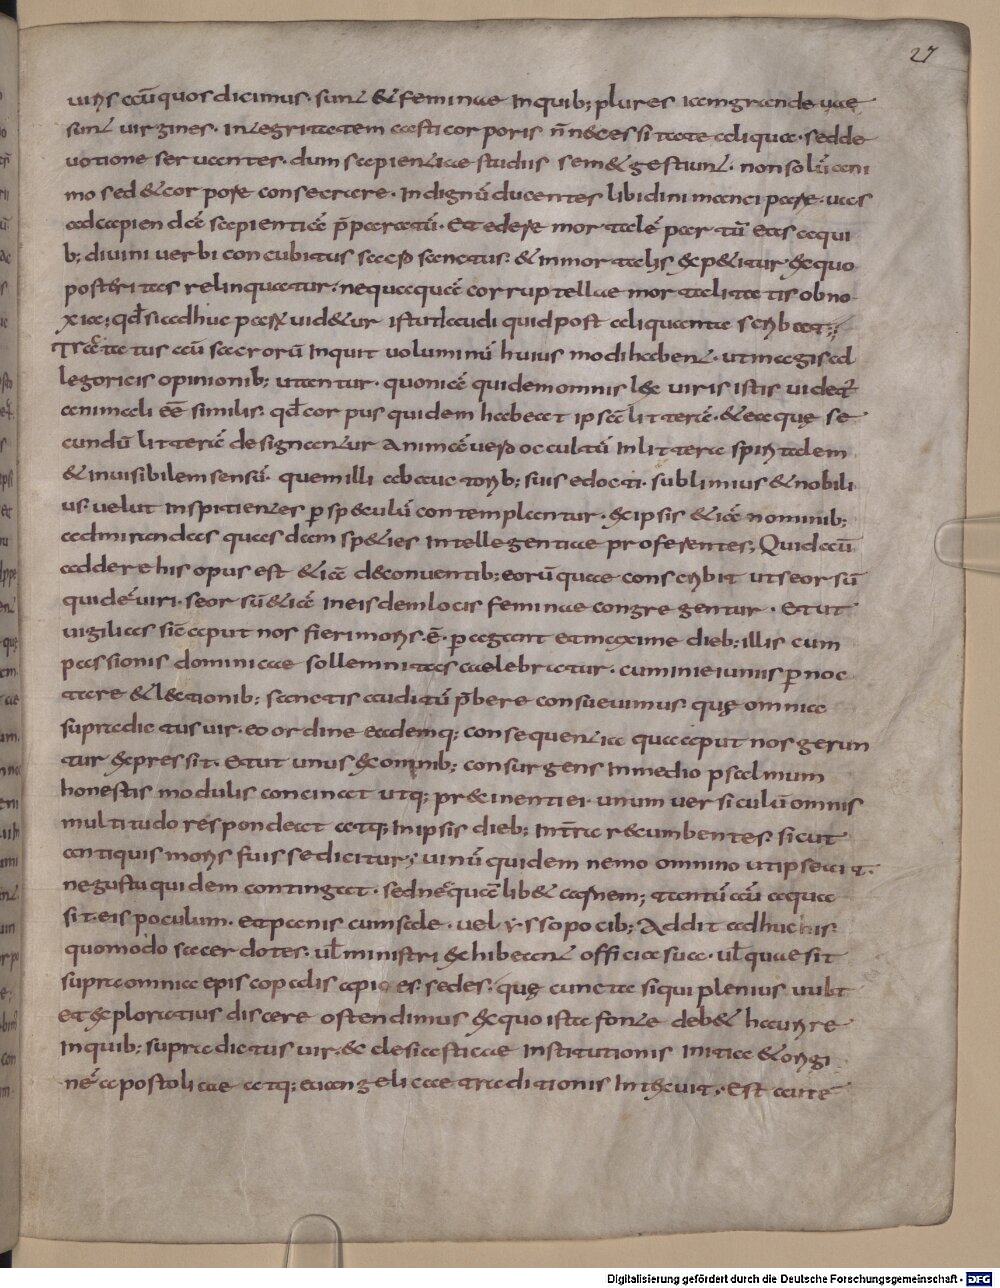 27
uirịs aū quos dicimus· sunt & feminae Inquib; plures iamgrandeuae
sunt uirgines· Integritatem casti corporis n̄ necessitate aliqua· sedde
uotione seruantes· dum sapientiae studiis sem& gestiunt· nonsolū ani
mo sed & corpore consecrare· Indignū ducentes libidini mancipare· uas
adcapiendā sapientiā p̄paratū· Et edere mortalē partū eas aqui
b; diuini uerbi concubitus sacro sanctus· & inmortalis exp&itur exquo
posteritas relinquatur· nequaquā corruptellae mortalitatis obno
xia; qd̄ si adhuc pares uid&ur istut audi quid post aliquanta scribat;
Tractatus aū sacrorū Inquit uoluminū huiusmodi habent· utmagis al
legoricis opinionib; utantur· quoniā quidem omnis lex uiris istis uidet̄
animali eē similis· qd̄ corpus quidem habeat ipsā litterā· & ea quę se
cundū litterā designantur animā uero occultū In littera spiritalem
& inuisibilem sensū· quem illi ab auctorib; suis edocti· sublimius & nobili
us· uelut Inspitientes p̄ speculū contemplantur· exipsis &iā nominib;
admirandas quasdam species Intellegentiae proferentes; Quid aū
addere his opus est &iā deconuentib; eorū quae conscribit utseorsū
quidē uiri· seorsū &iā Ineisdem locis feminae congregentur· Et ut
uigilias sic aput nos fieri moris· ē· p̄ agant et maxime dieb; illis cum
passionis dominicae sollemnitas caelebratur· cum inieiuniis p̄noc
tare & lectionib; sanctis auditū p̄bere consueuimus· quę omnia
supradictus uir· eo ordine eademq; consequentia qua aput nos gerun
tur expressit· Et ut unus ex omnib; consurgens Inmedio psalmum
honestis modulis concinat utq; praecinenti ei· unum uersiculū omnis
multitudo respondeat atq; Inipsis dieb; In t̄ra recumbentes· sicut
antiquis moris fuisse dicitur; uinū quidem nemo omnino utipse ait·
negustu quidem contingat· sed nequā lib& carnem; tantū aū aqua
sit eis poculum· et panis cumsale· uel yssopo cib; Addit adhuc his·
quomodo sacerdotes· ul̄ ministri exhibeant officia sua· ul̄ quae sit
supra omnia episcopalis apices sedes· quę cuncta siqui plenius uult
et exploratius discere ostendimus exquo ista fonte deb& haurire
Inquib; supradictus uir· ecclesiasticae Institutionis Initia & origi
nē apostolicae atq; euangelicae traditionis Intexuit; Est aute
Digitalisierung gefördert durch die Deutsche Forschungsgemeinschaft - DFG